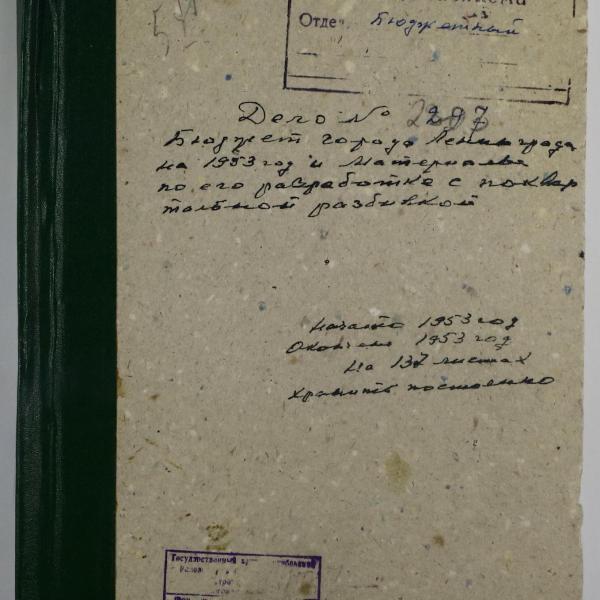 Отде Бюджетный
Дело № 2287
Бюджет города Ленинграда
на 1953 год и материалы
по его разработке с поквар
тальной разбивкой
Начато 1953 год
Окончено 1953 год
На 137 листах
хранить постоянно
Государственный